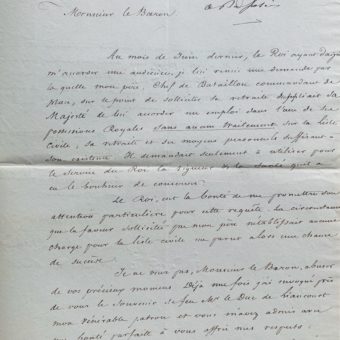 Monsieur le Baron
Au mois de Juin dernier, le Roi ayant daigné
m'accorder une audience, je lui remis une demande par
laquelle mon père, Chef de Bataillon commandant de
place, sur le point de solliciter sa retraite suppliait Sa
Majesté de lui accorder un emploi dans l'une de ses
possessions Royales sans aucun traitement sur la liste
Civile, sa retraite et ses moyens personnels suffisant à
son existence. Il demandait seulement à utiliser pour
le service du Roi la vigueur & la santé qu'il a
eu le bonheur de conserver.
Le Roi, eut la bonté de me promettre son
attention particulière pour cette requête la circonstance
que la faveur sollicitée par mon père n'établissait aucune
charge pour la liste civile me parut alors une chance
de succès.
Je ne veux pas, Monsieur le Baron, abuser
de vos précieux moments. Déjà une fois j'ai invoqué près
de vous le Souvenir de feu Mr le Duc de Liancourt
mon vénérable patron et vous m'avez admis avec
une bonté parfaite à vous offrir mes respects.